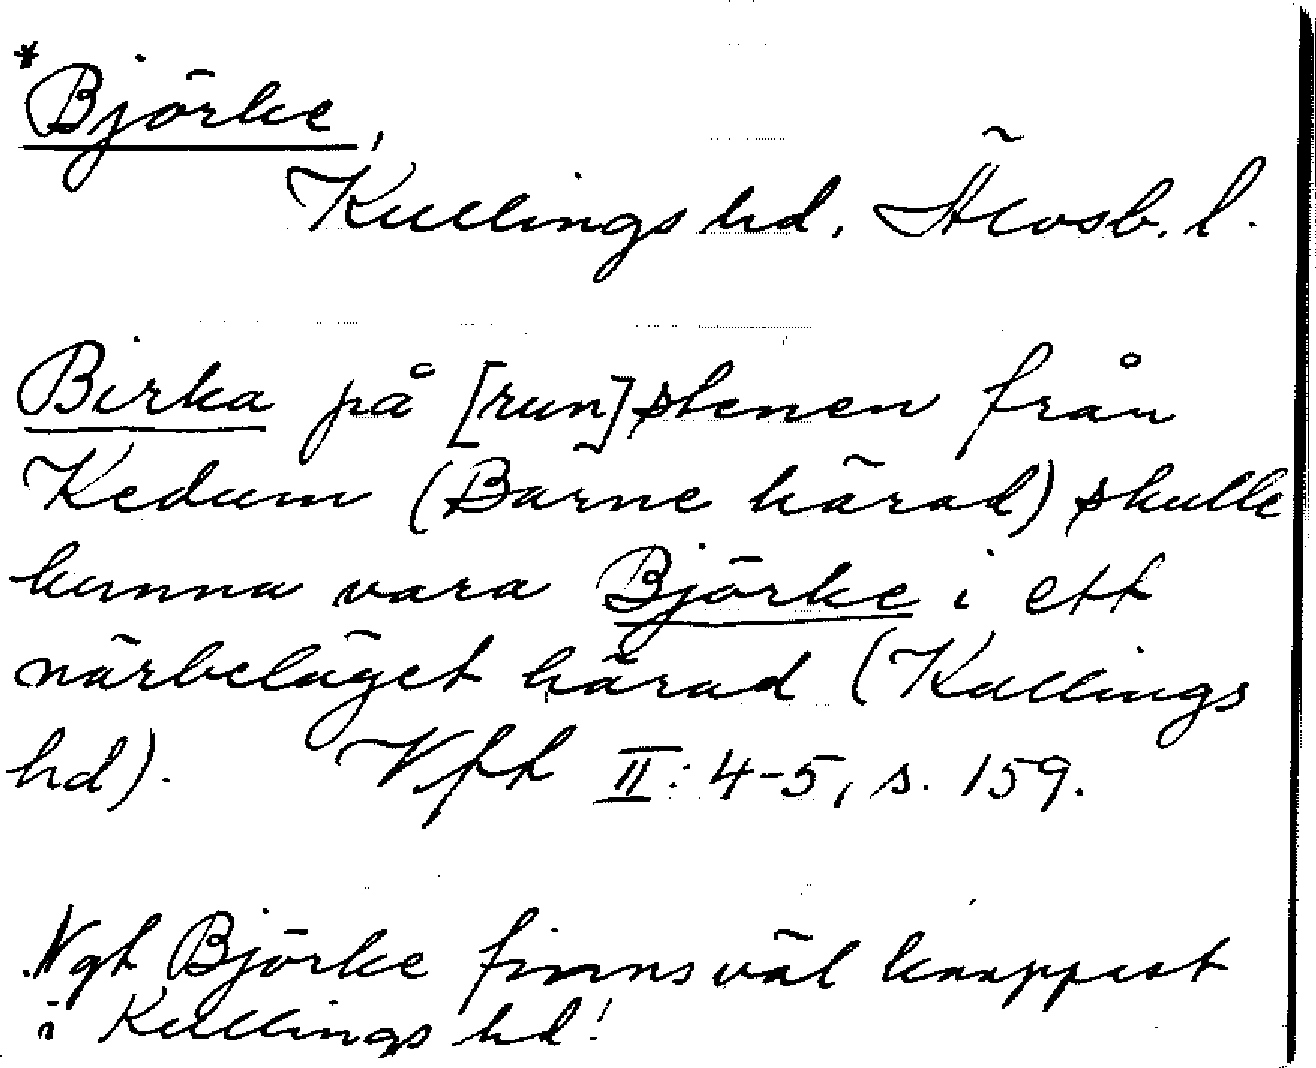 *Björke,
Kullings hd. Älvsb. l.
Birka på [run]stenen från
Kedum (Barne härad) skulle
kunna vara Björke i ett
närbeläget härad (Kullings
hd). Vft II: 4-5, s. 159.
Ngt Björke finns väl knappast
i Kullings hd!